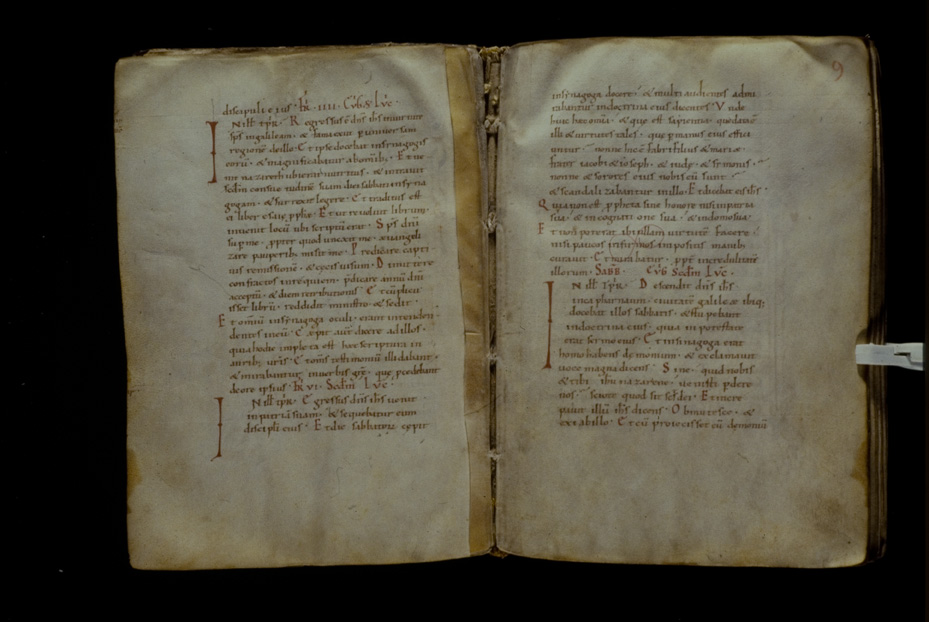 discipuli eius · FR̄ · IIII · SCD̄M LVC̄ ·
IN ill̄ tp̄r · Regressus ē dn̄s ih̄s in uirtute
sp̄s in galileam · & fama exiit p uniuersam
regionē de illo · Et ipse docebat in synagogis
eorū · & magnificabatur ab omnib; · Et ue
nit nazareth ubi erat nutritus · & intrauit
scd̄m consuetudinē suam die sabbati in syna
gogam · & surrexit legere · Et traditus est
ei liber esaię pph̄ę · Et ut reuoluit librum ·
inuenit locū ubi scriptū erat · Sp̄s dn̄i
sup me · ppter quod unxit me · euangeli
zare pauperib; misit me · Predicare capti
uis remissionē · & cęcis uisum · Dimittere
confractos in requiem · p̄dicare annū dn̄i
acceptū · & diem retributionis · Et cū plicu
isset librū · reddidit ministro · & sedit ·
Et omniū in synagoga oculi · erant intenden
tes in eū · Cępit aut̄ dicere ad illos ·
quia hodie impleta est hęc scriptura in
aurib; ur̄is · Et om̄s testimoniū illi dabant ·
& mirabantur in uerbis grę · quę pcedebant
de ore ipsius · FR̄ VI · Scd̄m LVC̄ ·
IN ill̄ tp̄r · Egressus dn̄s ih̄s uenit
in patriā suam · & sequebatur eum
discipuli eius · Et die sabbatorū cępit
9
in synagoga docere · & multi audientes admi
rabantur in doctrina eius dicentes · Vnde
huic hęc omia · & que est sapientia · que data ē
illi & uirtutes tales · quę p manus eius effici
untur · nonne hic ē fabri filius & marię ·
frater iacobi & ioseph · & iudę · & simonis ·
nonne & sorores eius nobiscū sunt ·
& scandalizabantur in illo · Et dicebat eis ih̄s ·
Quia non est ppheta sine honore nisi in patria
sua · & in cognatione sua · & in domo sua ·
Et non poterat ibi ullam uirtutē facere ·
nisi paucos infirmos impositis manib;
curauit · Et mirabatur · ppt̄ incredulitatē
illorum · SABB · SCD̄M LVC̄ ·
IN ill̄ tp̄r · Descendit dn̄s ih̄s
in capharnaum · ciuitatē galileę ibiq;
docebat illos sabbatis · & stupebant
in doctrina eius · quia in potestate
erat sermo eius · Et in sinagoga erat
homo habens demonium · & exclamauit
uoce magna dicens · Sine · quid nobis
& tibi ih̄u nazarene · uenisti pdere
nos · scio te quod sis sc̄s dei · Et incre
pauit illū ih̄s dicens · Obmutesce · &
exi ab illo · Et cū proiecisset eū demoniū